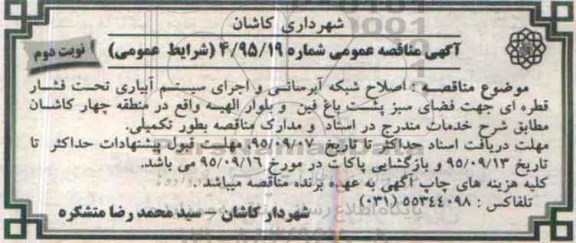 شهرداری کاشان
آگهی مناقصه عمومی شماره ۴/۹۵/۱۹ (شرایط عمومی)
نوبت دوم
موضوع مناقصه : اصلاح شبکه آبرسانی و اجرای سیستم آبیاری تحت فشار
قطره ای جهت فضای سبز پشت باغ فین و بلوار الهیه واقع در منطقه چهار کاشان
مطابق شرح خدمات مندرج در اسناد و مدارک مناقصه بطور تکمیلی.
مهلت دریافت اسناد حداکثر تا تاریخ ۹۵/۰۹/۰۷ مهلت قبول پیشنهادات حداکثر تا
تاریخ ۹۵/۰۹/۱۳ و بازگشایی پاکات در مورخ ۹۵/۰۹/۱۶ می باشد.
کلیه هزینه های چاپ آگهی به عهده برنده مناقصه میباشد.
تلفاکس : ۵۵۳۴۴۰۹۸ (۰۳۱)
شهردار کاشان – سید محمد رضا متشکره